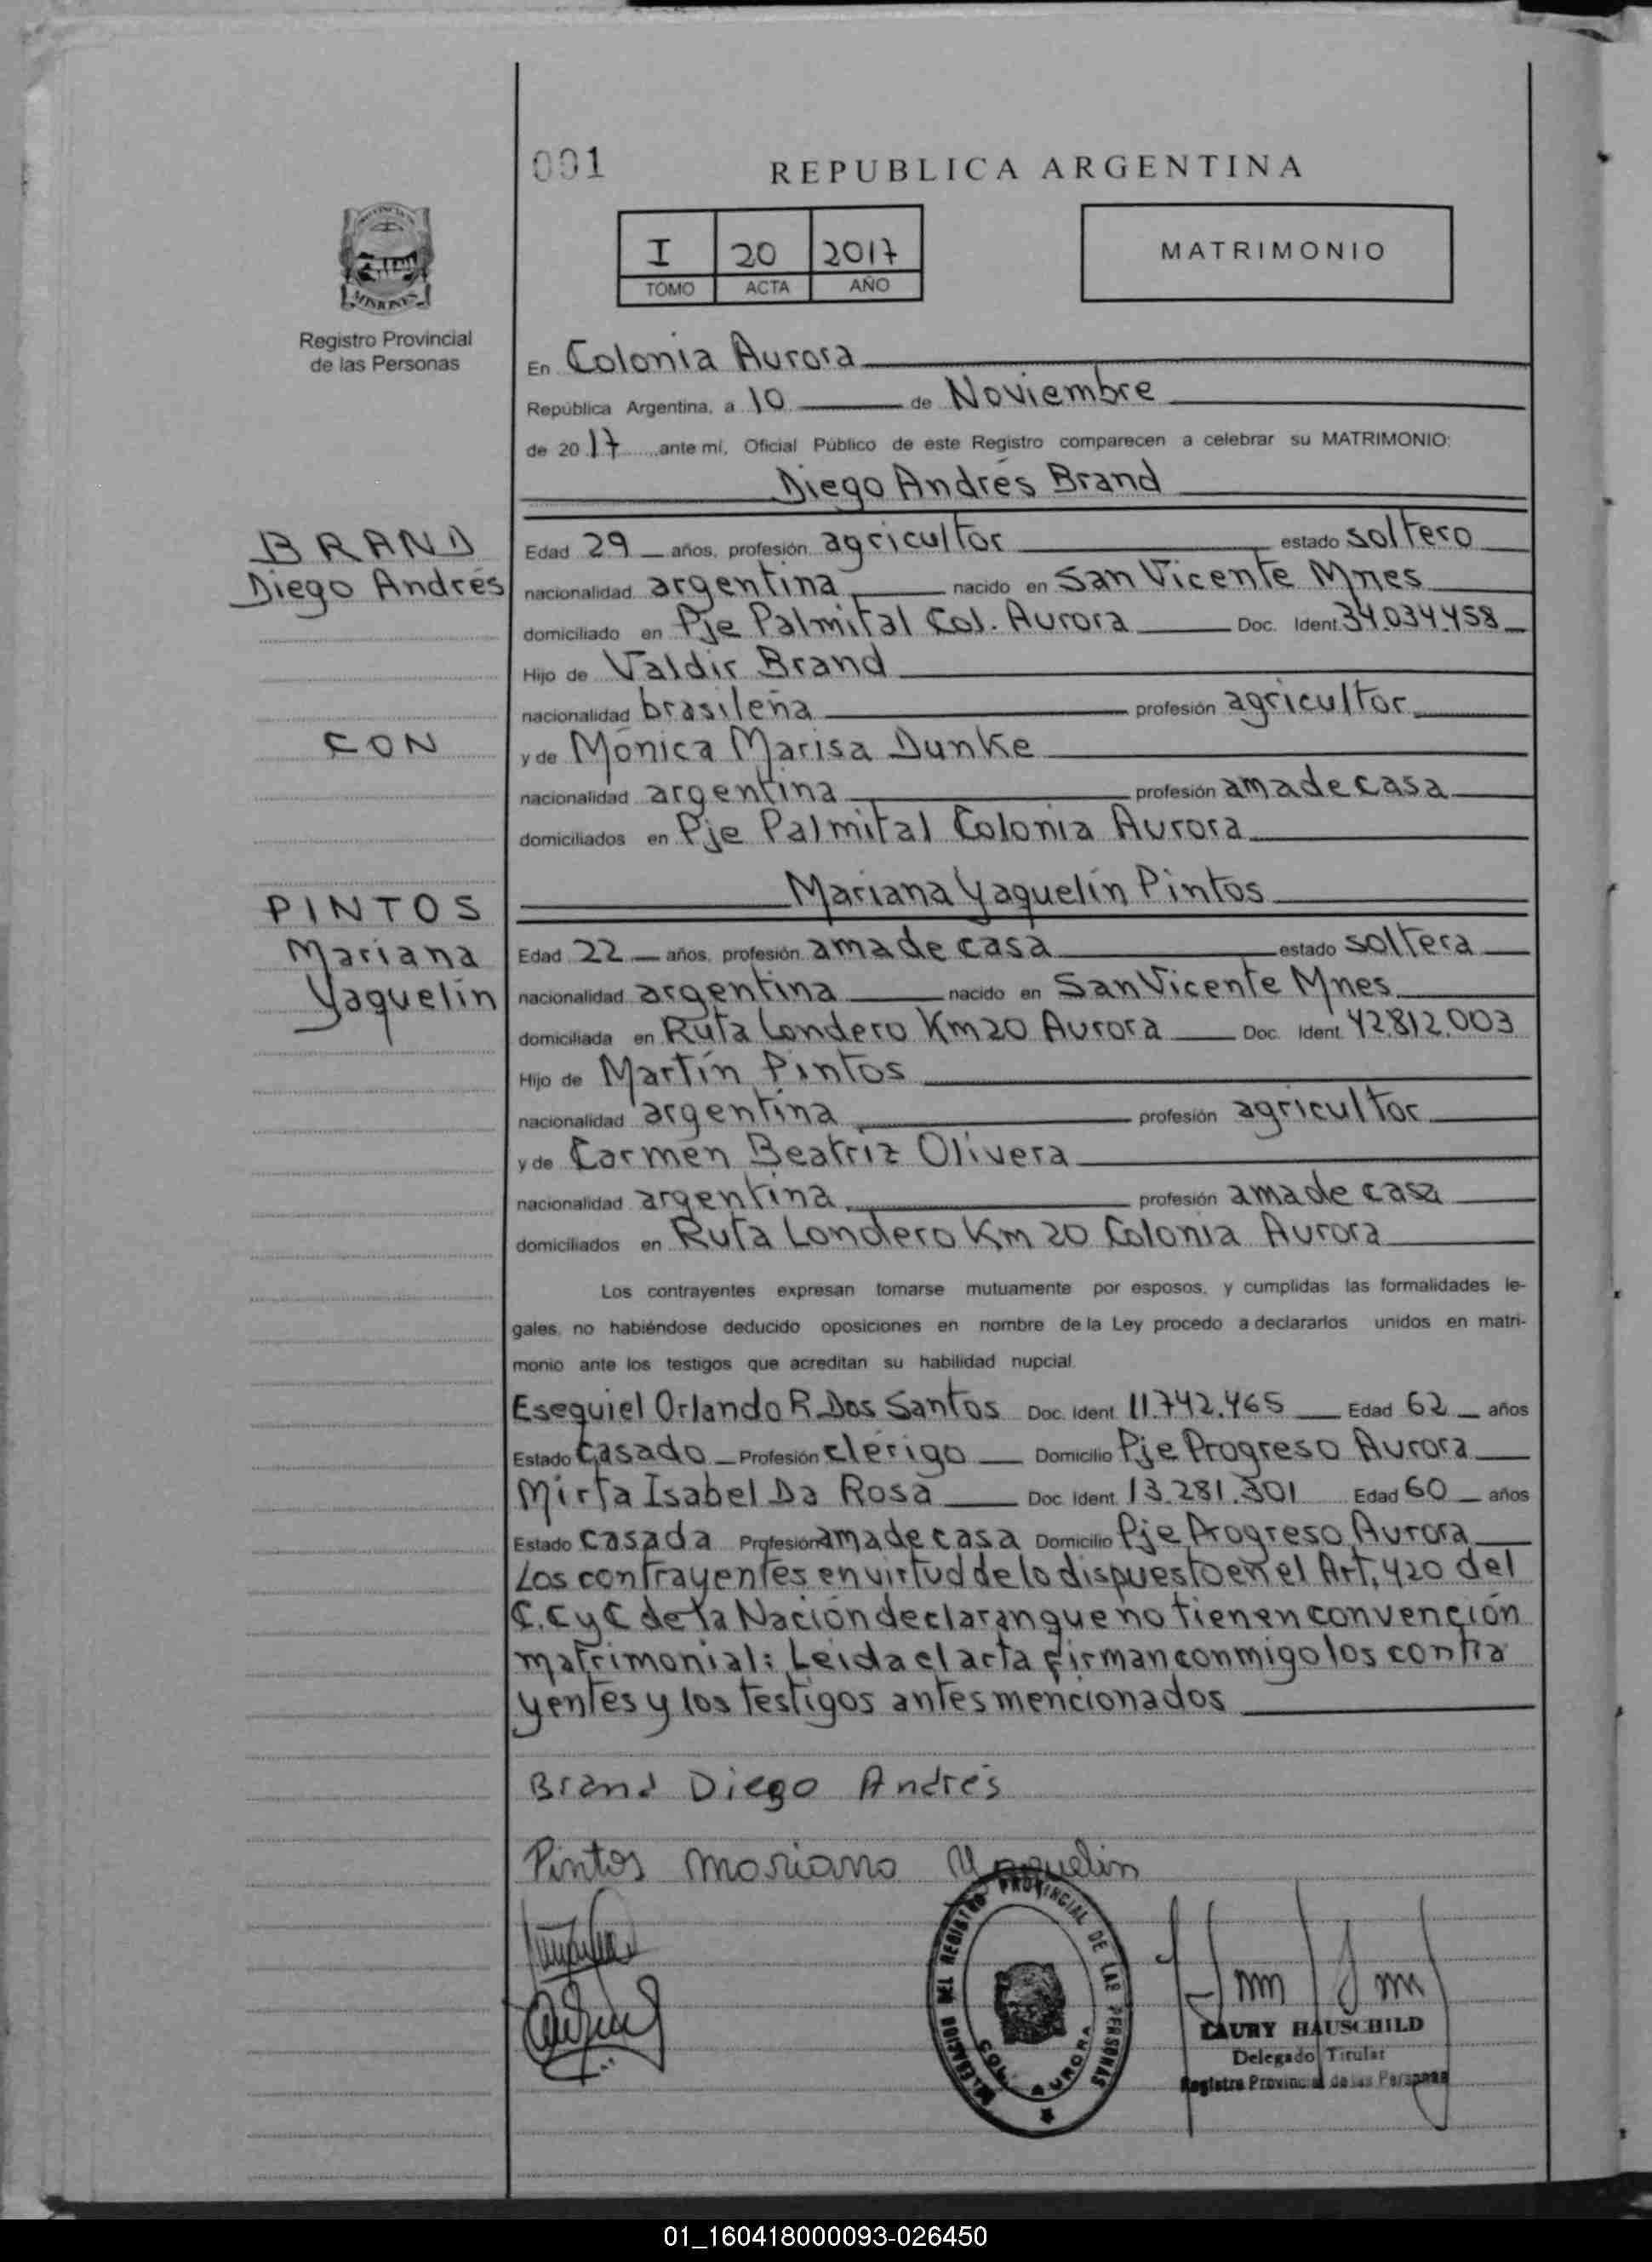 001
REPUBLICA ARGENTINA
I 20 2017
TOMO ACTA AÑO
MATRIMONIO
MISIONES
Registro Provincial
de las Personas
En Colonia Aurora
República Argentina, a 10 de Noviembre
de 2017 ante mí, Oficial Público de este Registro comparecen a celebrar su MATRIMONIO:
Diego Andrés Brand
BRAND
Diego Andrés
Edad 29 años, profesión agricultor estado soltero
nacionalidad argentina nacido en San Vicente Mnes
domiciliado en Pje Palmital Col. Aurora Doc. Ident. 34.034.458
Hijo de Valdir Brand
nacionalidad brasileña profesión agricultor
CON
y de Mónica Marisa Dunke
nacionalidad argentina profesión ama de casa
domiciliados en Pje Palmital Colonia Aurora
Mariana Yaquelín Pintos
PINTOS
Mariana
Yaquelín
Edad 22 años, profesión ama de casa estado soltera
nacionalidad argentina nacido en San Vicente Mnes
domiciliada en Ruta Londero Km 20 Aurora Doc. Ident. 42.812.003
Hijo de Martín Pintos
nacionalidad argentina profesión agricultor
y de Carmen Beatriz Olivera
nacionalidad argentina profesión ama de casa
domiciliados en Ruta Londero Km 20 Colonia Aurora
Los contrayentes expresan tomarse mutuamente por esposos, y cumplidas las formalidades le-
gales, no habiéndose deducido oposiciones en nombre de la Ley procedo a declararlos unidos en matri-
monio ante los testigos que acreditan su habilidad nupcial.
Esequiel Orlando R. Dos Santos Doc. Ident. 11.742.465 Edad 62 años
Estado Casado Profesión clérigo Domicilio Pje Progreso Aurora
Mirta Isabel Da Rosa Doc. Ident. 13.281.301 Edad 60 años
Estado casada Profesión ama de casa Domicilio Pje Progreso Aurora
Los contrayentes en virtud de lo dispuesto en el Art. 420 del
C.C y C de la Nación declaran que no tienen convención
matrimonial: Leída el acta firman conmigo los contra
yentes y los testigos antes mencionados
Brand Diego Andrés
Pintos Mariana Yaquelin
DELEGACION DEL REGISTRO PROVINCIAL DE LAS PERSONAS
COL. AURORA
LAURY HAUSCHILD
Delegado Titular
Registro Provincial de las Personas
01_160418000093-026450